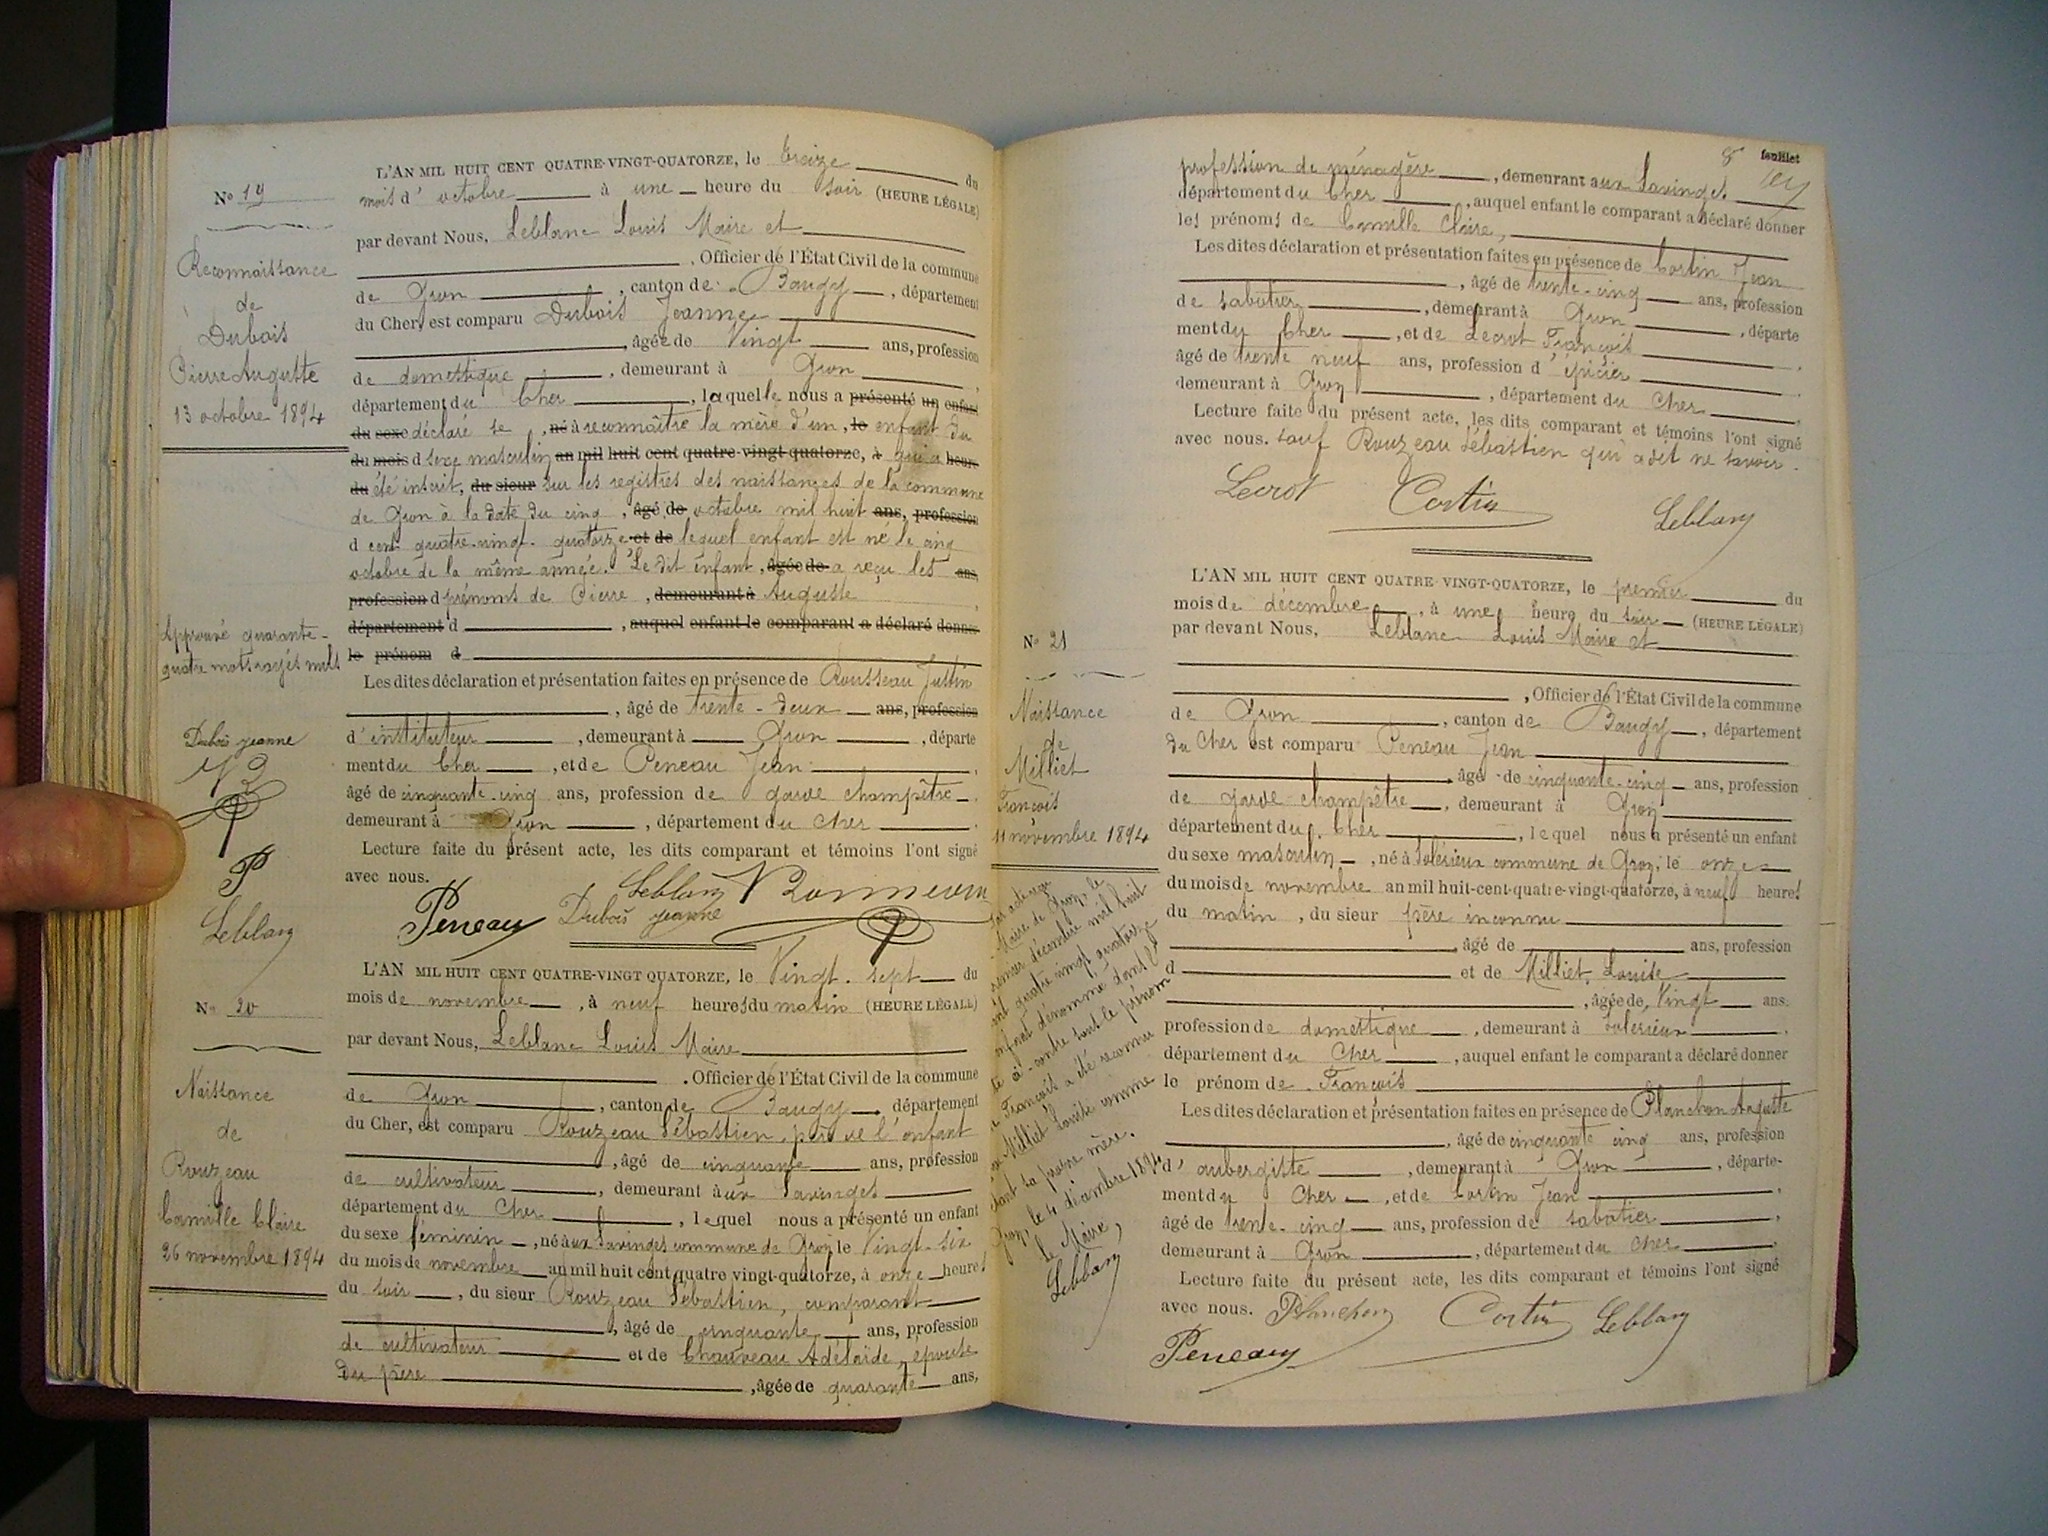 N° 19
Reconnaissance
de
Dubois
Pierre Auguste
13 octobre 1894
Approuvé quarante-
quatre mots rayés nuls
Dubois Jeanne
P
Leblanc
L'AN MIL HUIT CENT QUATRE-VINGT-QUATORZE, le treize du
mois d'octobre à une heure du soir (HEURE LÉGALE)
par devant Nous, Leblanc Louis Maire et
, Officier de l'État Civil de la commune
de Gron , canton de Baugy , département
du Cher, est comparu Dubois Jeanne
, âgée de Vingt ans, profession
de domestique , demeurant à Gron ,
département du Cher , laquelle nous a présenté un enfant
du sexe déclaré se , né à reconnaître la mère d'un , le enfant du
du mois d sexe masculin an mil huit cent quatre-vingt quatorze, à qui a heure
du été inscrit, du sieur sur les registres des naissances de la commune
de Gron à la date du cinq , âgé de octobre mil huit ans, profession
d cent quatre-vingt-quatorze et de lequel enfant est né le cinq
octobre de la même année. Le dit enfant , âgée de a reçu les ans,
profession d prénoms de Pierre , demeurant à Auguste
département d , auquel enfant le comparant a déclaré donner
le prénom d
Les dites déclaration et présentation faites en présence de Rousseau Justin
, âgé de trente-deux ans, profession
d'instituteur , demeurant à Gron , départe
ment du Cher , et de Peneau Jean ,
âgé de cinquante-cinq ans, profession de garde champêtre ,
demeurant à Gron , département du Cher .
Lecture faite du présent acte, les dits comparant et témoins l'ont signé
avec nous.
Leblanc
Peneau Dubois Jeanne
N° 20
Naissance
de
Rouzeau
Camille Claire
26 novembre 1894
L'AN MIL HUIT CENT QUATRE-VINGT QUATORZE, le Vingt-sept du
mois de novembre , à neuf heures du matin (HEURE LÉGALE)
par devant Nous, Leblanc Louis Maire
, Officier de l'État Civil de la commune
de Gron , canton de Baugy , département
du Cher, est comparu Rouzeau Sébastien, père de l'enfant
, âgé de cinquante ans, profession
de cultivateur , demeurant aux Savinges
département du Cher , lequel nous a présenté un enfant
du sexe féminin , né aux Savinges commune de Gron le Vingt-six
du mois de novembre an mil huit cent quatre vingt-quatorze, à onze heures
du soir , du sieur Rouzeau Sébastien, comparant
, âgé de cinquante ans, profession
de cultivateur et de Chauveau Adélaïde, épouse
du père , âgée de quarante ans,
8 feuillet
profession de ménagère , demeurant aux Savinges
département du Cher , auquel enfant le comparant a déclaré donner
les prénoms de Camille Claire,
Les dites déclaration et présentation faites en présence de Cortin Jean
, âgé de trente-cinq ans, profession
de sabotier , demeurant à Gron , départe
ment du Cher , et de Lecrot François
âgé de trente neuf ans, profession d'épicier ,
demeurant à Gron , département du Cher .
Lecture faite du présent acte, les dits comparant et témoins l'ont signé
avec nous. sauf Rouzeau Sébastien qui a dit ne savoir.
Lecrot Cortin Leblanc
N° 21
Naissance
de
Milliet
François
11 novembre 1894
Par acte reçu
Maire de Gron, le
premier décembre mil huit
cent quatre vingt quatorze
enfant dénommé dans l'
te ci-contre sous le prénom
de François a été reconnu
par Milliet Louise comme
étant sa propre mère.
Gron, le 4 décembre 1894
le Maire,
Leblanc
L'AN MIL HUIT CENT QUATRE VINGT-QUATORZE, le premier du
mois de décembre , à une heure du soir (HEURE LÉGALE)
par devant Nous, Leblanc Louis Maire et
, Officier de l'État Civil de la commune
de Gron , canton de Baugy , département
du Cher est comparu Peneau Jean
, âgé de cinquante-cinq ans, profession
de garde-champêtre , demeurant à Gron
département du Cher , lequel nous a présenté un enfant
du sexe masculin , né à Solérieux commune de Gron, le onze
du mois de novembre an mil huit-cent-quatre-vingt-quatorze, à neuf heures
du matin , du sieur père inconnu
, âgé de ans, profession
d et de Milliet Louise
, âgée de Vingt ans.
profession de domestique , demeurant à Solerieux .
département du Cher , auquel enfant le comparant a déclaré donner
le prénom de François
Les dites déclaration et présentation faites en présence de Planchon Auguste
, âgé de cinquante cinq ans, profession
d'aubergiste , demeurant à Gron , départe-
ment du Cher , et de Cortin Jean ,
âgé de trente-cinq ans, profession de sabotier ,
demeurant à Gron , département du Cher .
Lecture faite du présent acte, les dits comparant et témoins l'ont signé
avec nous. Planchon Cortin Leblanc
Peneau